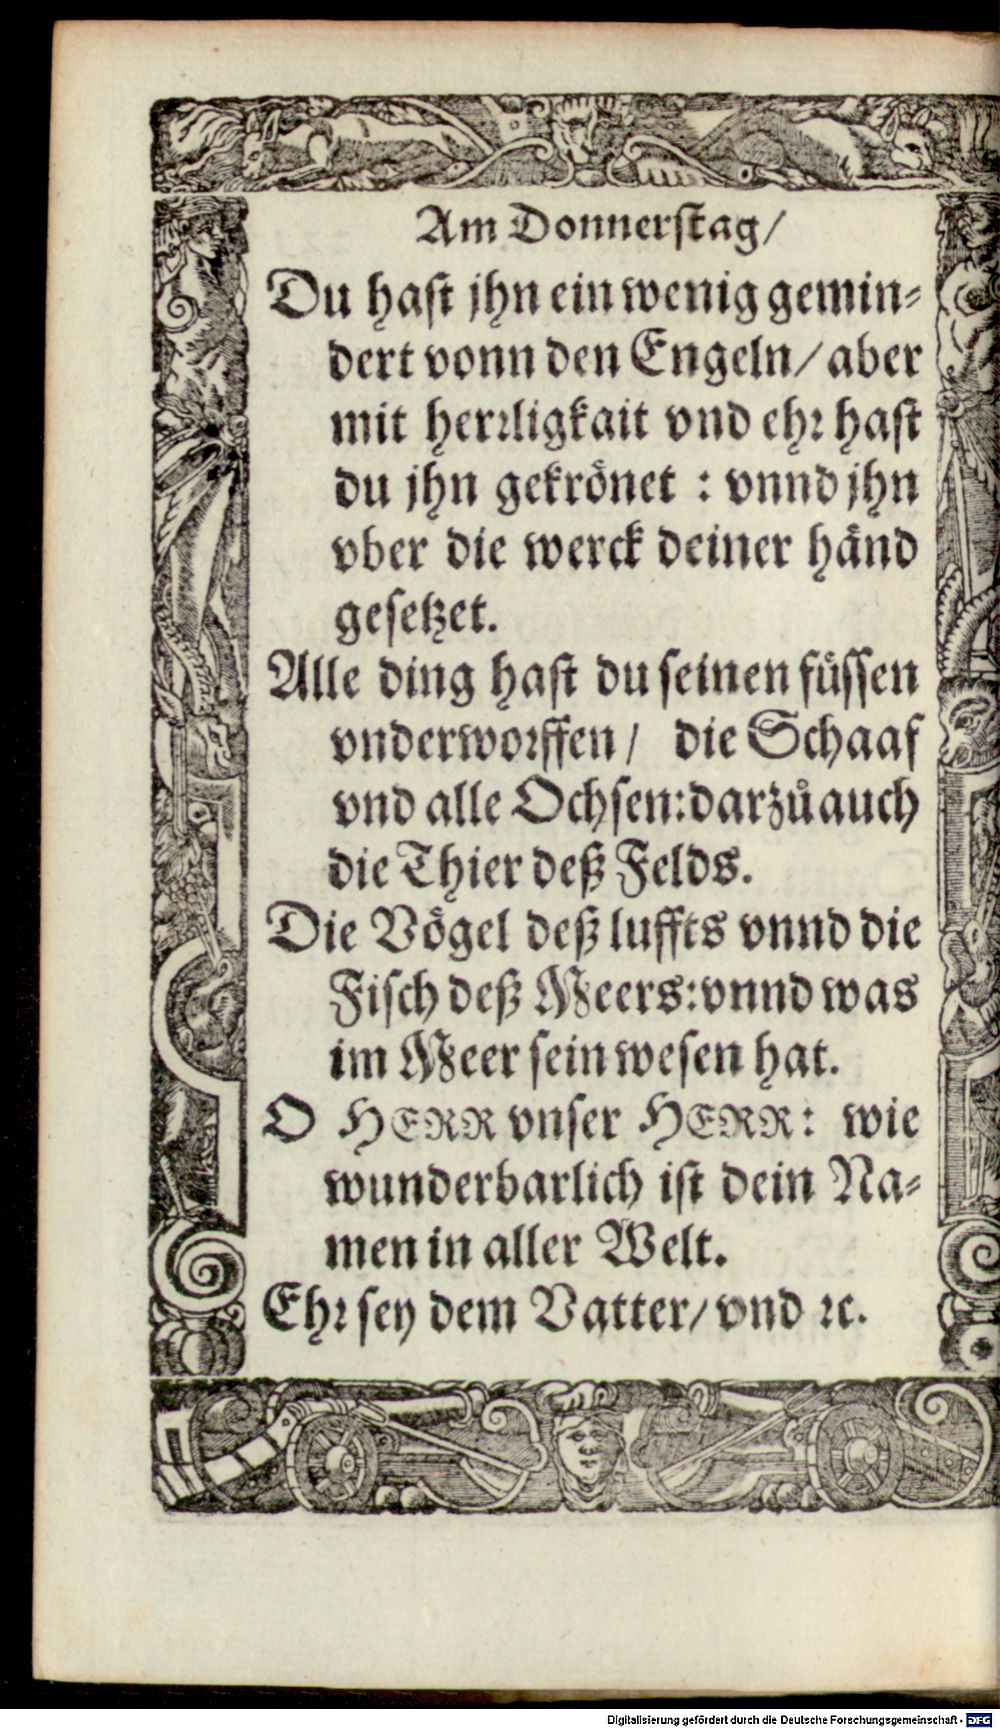 Am Donnerstag/
Du hast jhn ein wenig gemin⸗
dert vonn den Engeln/ aber
mit herrligkait vnd ehr hast
du jhn gekrönet : vnnd jhn
vber die werck deiner händ
gesetzet.
Alle ding hast du seinen füssen
vnderworffen/ die Schaaf
vnd alle Ochsen:darzů auch
die Thier deß Felds.
Die Vögel deß luffts vnnd die
Fisch deß Meers:vnnd was
im Meer sein wesen hat.
O HERR vnser HERR: wie
wunderbarlich ist dein Na⸗
men in aller Welt.
Ehr sey dem Vatter/ vnd ꝛc.
Digitalisierung gefördert durch die Deutsche Forschungsgemeinschaft - DFG